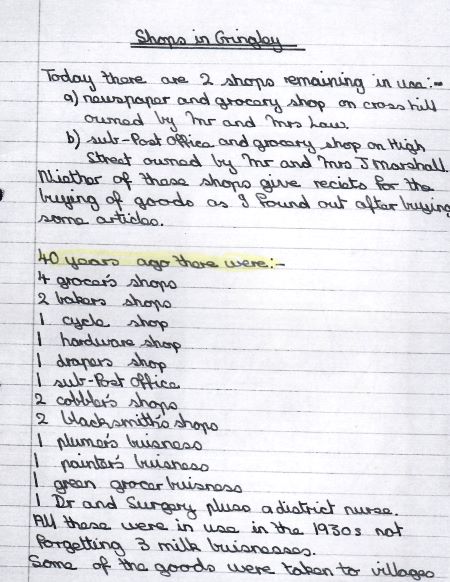 Shops in Gringley
Today there are 2 shops remaining in use:-
a) newspaper and grocery shop on cross hill
owned by Mr and Mrs Law.
b) sub-Post office and grocery shop on High
Street owned by Mr and Mrs J Marshall.
Niether of these shops give reciets for the
buying of goods as I found out after buying
some articles.
40 years ago there were:-
4 grocer's shops
2 bakers shops
1 cycle shop
1 hardware shop
1 drapers shop
1 sub-Post office
2 cobbler's shops
2 blacksmith's shops
1 plumer's buisness
1 painter's buisness
1 green grocer buisness
1 Dr and Surgery pluse a district nurse.
All these were in use in the 1930s not
forgetting 3 milk buisnesses.
Some of the goods were taken to villages